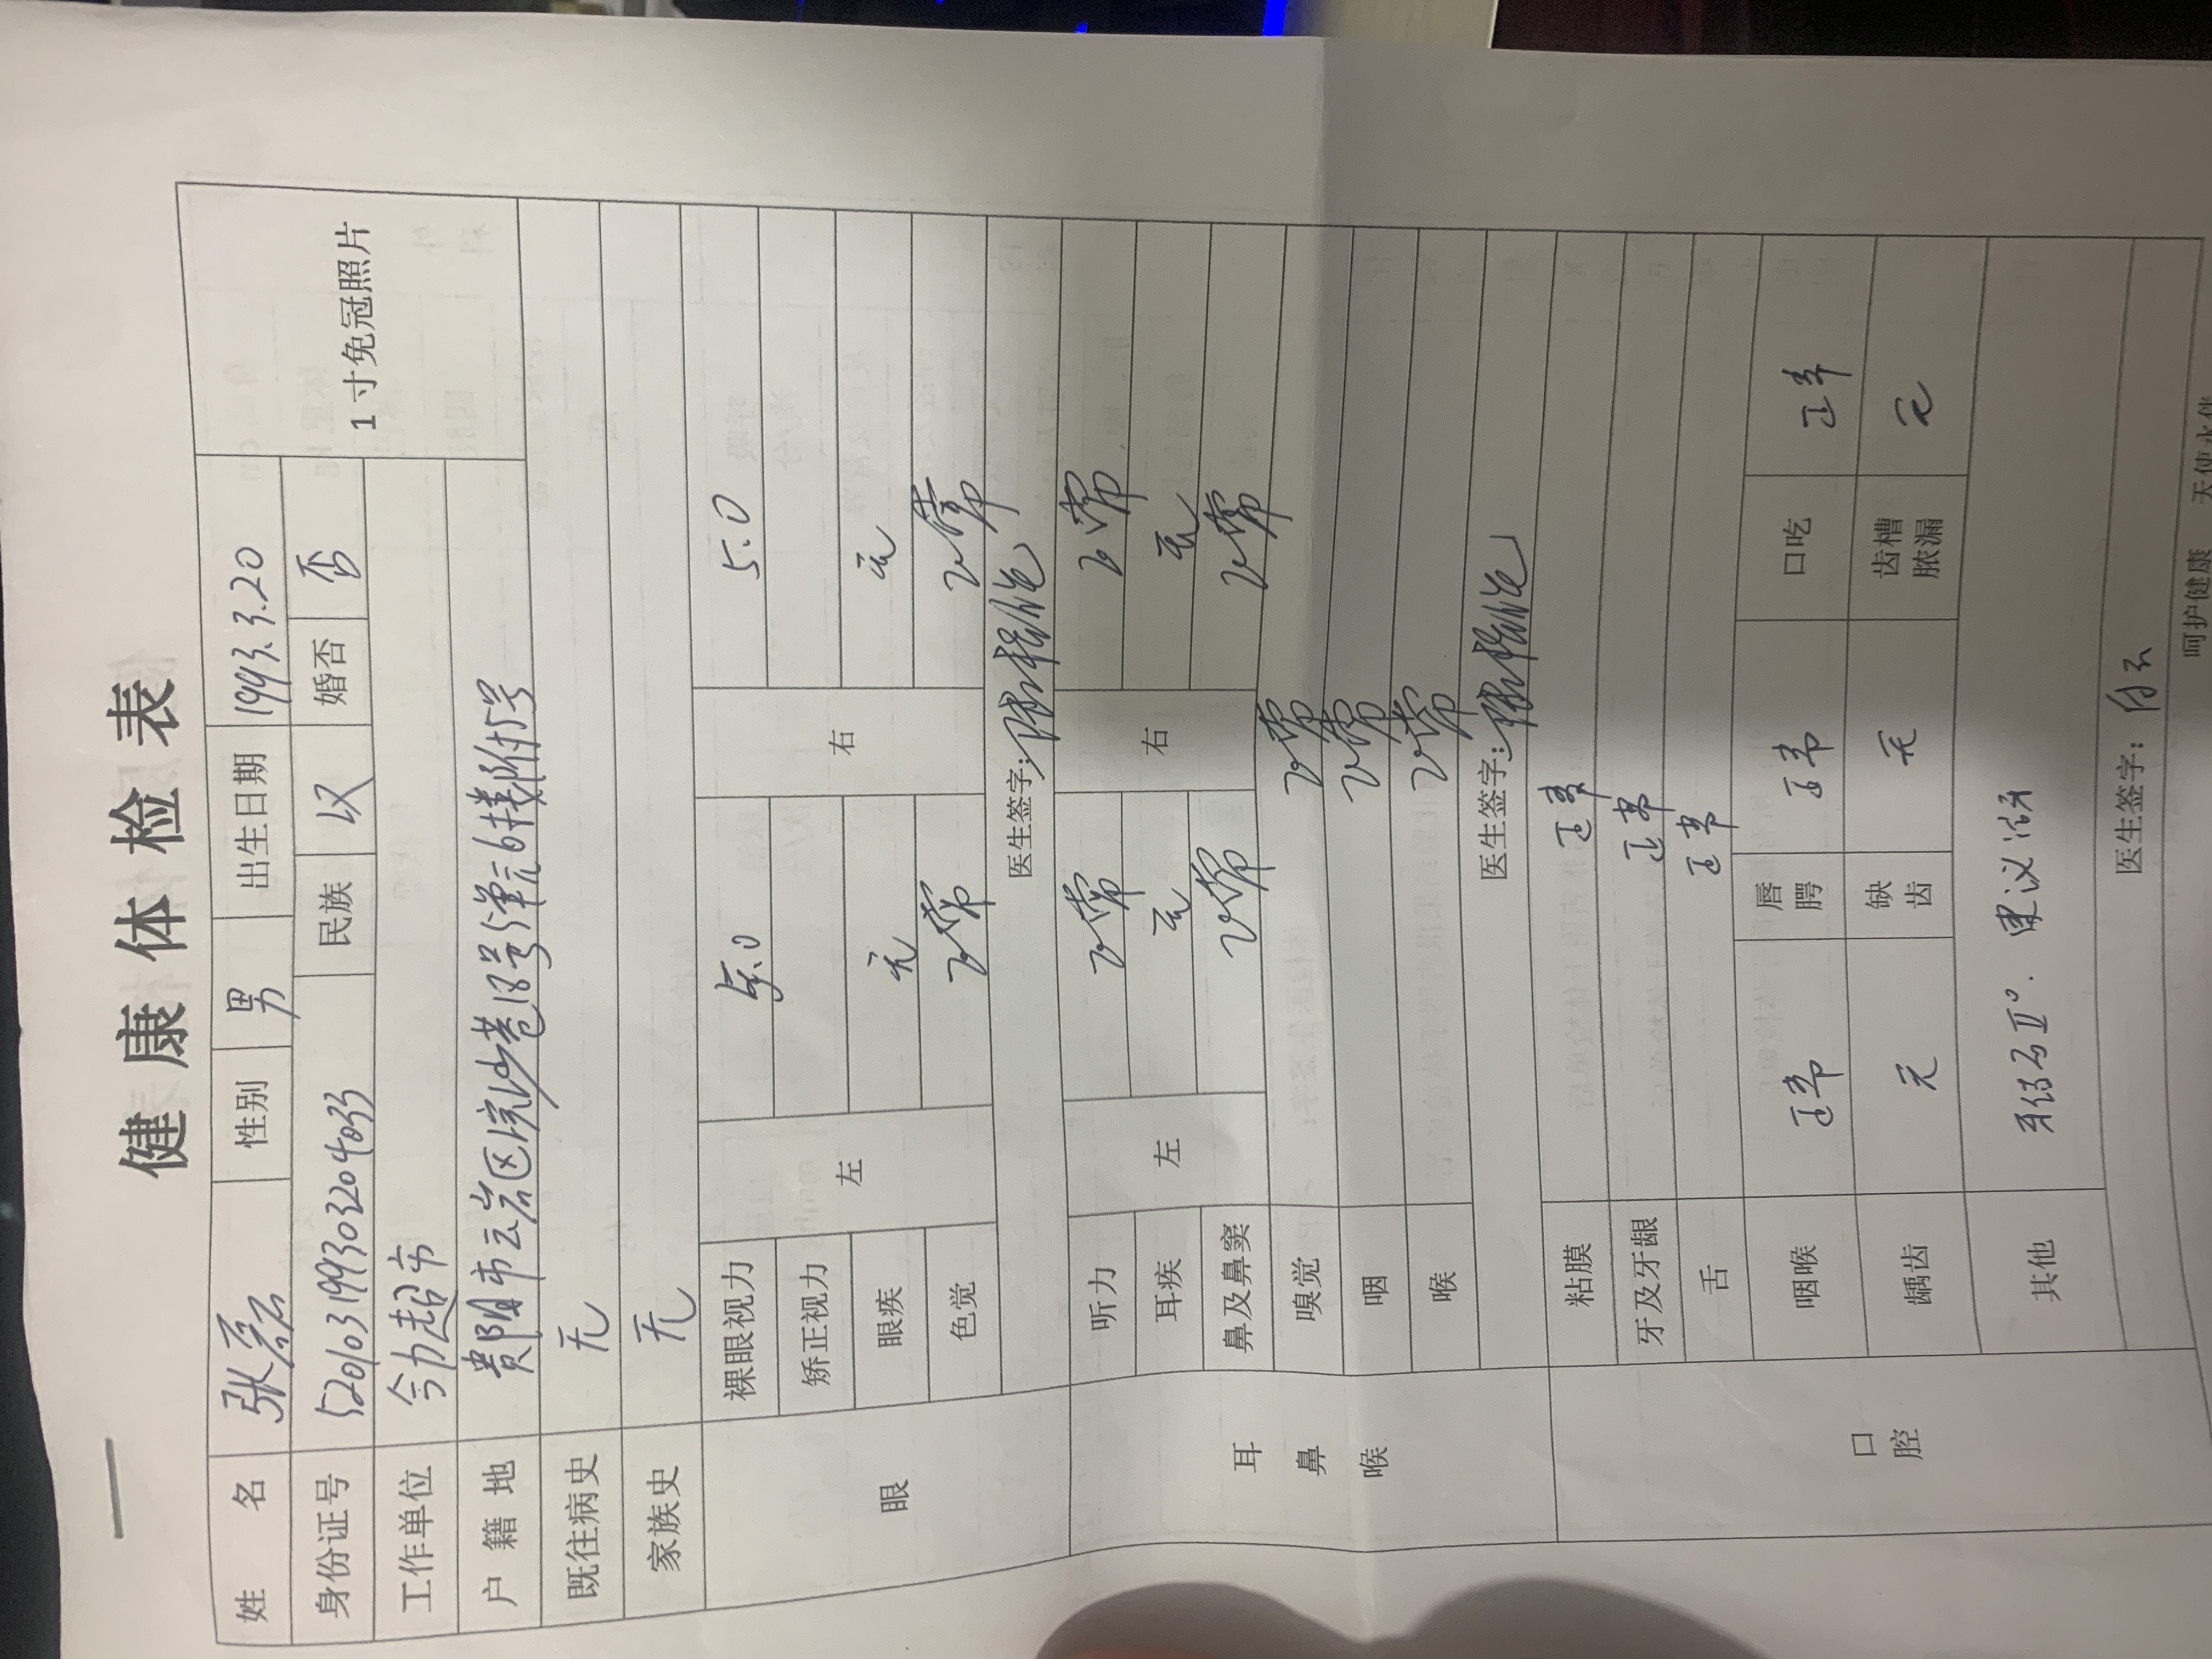 健康体检表
姓 名 张磊 性别 男 出生日期 1993.3.20 1寸免冠照片
身份证号 520103199303204033 民族 汉 婚否 否
工作单位 今力超市
户籍地 贵阳市云岩区浣沙巷18号1单元6楼附15号
既往病史 无
家族史 无
眼 裸眼视力 左 5.0 右 5.0
矫正视力
眼疾 无 无
色觉 正常 正常
医生签字:
耳鼻喉 听力 左 正常 右 正常
耳疾 无 无
鼻及鼻窦 正常 正常
嗅觉 正常
咽 正常
喉 正常
医生签字:
口腔 粘膜 正常
牙及牙龈 正常
舌 正常
咽喉 正常 唇腭 正常 口吃 正常
龋齿 无 缺齿 无 齿槽脓漏 无
其他 牙结石II°. 建议洁牙
医生签字:
呵护健康 天使永伴